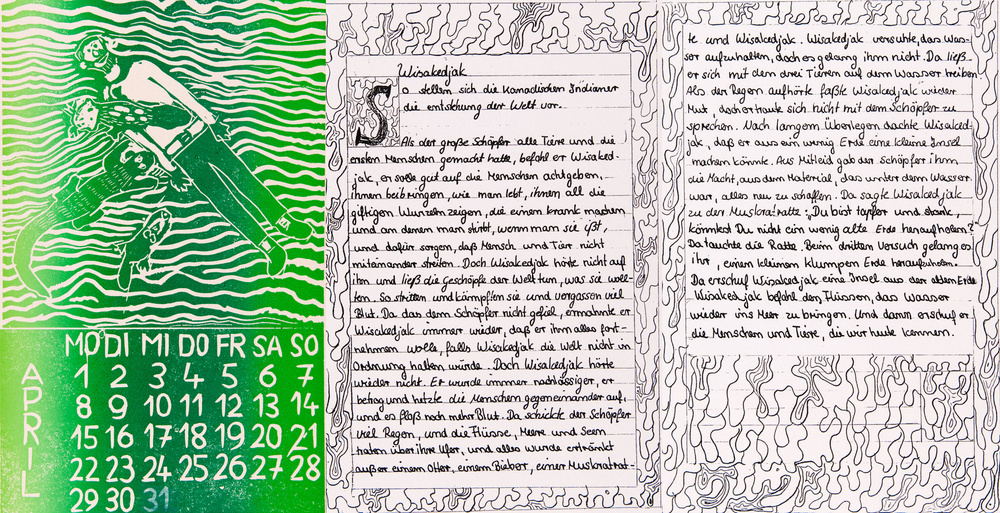 MO DI MI DO FR SA SO
APRIL
1 2 3 4 5 6 7
8 9 10 11 12 13 14
15 16 17 18 19 20 21
22 23 24 25 26 27 28
29 30 31
Wisakedjak
So stellen sich die Kanadischen Indianer
die entstehung der Welt vor.
Als der große Schöpfer alle Tiere und die
ersten Menschen gemacht hatte, befahl er Wisaked-
jak, er solle gut auf die Menschen achtgeben.
Ihnen beibringen, wie man lebt, ihnen all die
giftigen Wurzeln zeigen, die einem krank machen
und an denen man stirbt, wenn man sie ißt,
und dafür sorgen, daß Mensch und Tier nicht
miteinander streiten. Doch Wisakedjak hörte nicht auf
ihn und ließ die Geschöpfe der Welt tun, was sie woll-
ten. So stritten und kämpften sie und vergossen viel
Blut. Da das dem Schöpfer nicht gefiel, ermahnte er
Wisakedjak immer wieder, daß er ihm alles fort-
nehmen wolle, falls Wisakedjak die Welt nicht in
Ordnung halten würde. Doch Wisakedjak hörte
wieder nicht. Er wurde immer nachlässiger, er
betrog und hetzte die Menschen gegeneinander auf,
und es floß noch mehr Blut. Da schickte der Schöpfer
viel Regen, und die Flüsse, Meere und Seen
traten über ihre Ufer, und alles wurde ertränkt
außer einem Otter, einem Bieber, einer Muskratrat-
te und Wisakedjak. Wisakedjak versuhte, das Was-
ser aufzuhalten, doch es gelang ihm nicht. Da ließ
er sich mit dem drei Tieren auf dem Wasser treiben.
Als der Regen aufhörte faßte Wisakedjak wieder
Mut, doch er traute sich nicht mit dem Schöpfer zu
sprechen. Nach langem Überlegen dachte Wisaked-
jak, daß er aus ein wenig Erde eine kleine Insel
machen könnte. Aus Mitleid gab der Schöpfer ihm
die Macht, aus dem Material, das unter dem Wasser
war, alles neu zu schaffen. Da sagte Wisakedjak
zu der Muskratratte: „Du bist tapfer und stark,
könntest Du nicht ein wenig alte Erde heraufholen?"
Da tauchte die Ratte. Beim dritten Versuch gelang es
ihr, einen kleinen Klumpen Erde heraufzuholen.
Da erschuf Wisakedjak eine Insel aus der alten Erde
Wisakedjak befahl den Flüssen, das Wasser
wieder ins Meer zu bringen. Und dann erschuf er
die Menschen und Tiere, die wir heute kennen.